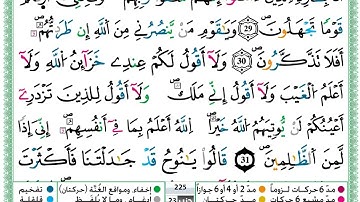 قَوْمًا تَجْهَلُونَ ۝29 وَيَٰقَوْمِ مَن يَنصُرُنِى مِنَ ٱللَّهِ إِن طَرَدتُّهُمْ ۚ
أَفَلَا تَذَكَّرُونَ ۝30 وَلَآ أَقُولُ لَكُمْ عِندِى خَزَآئِنُ ٱللَّهِ وَلَآ
أَعْلَمُ ٱلْغَيْبَ وَلَآ أَقُولُ إِنِّى مَلَكٌ وَلَآ أَقُولُ لِلَّذِينَ تَزْدَرِىٓ
أَعْيُنُكُمْ لَن يُؤْتِيَهُمُ ٱللَّهُ خَيْرًا ۖ ٱللَّهُ أَعْلَمُ بِمَا فِىٓ أَنفُسِهِمْ ۖ إِنِّىٓ إِذًا
لَّمِنَ ٱلظَّٰلِمِينَ ۝31 قَالُوا۟ يَٰنُوحُ قَدْ جَٰدَلْتَنَا فَأَكْثَرْتَ
مدّ 6 حركات لزوماً مدّ 2 أو 4 أو 6 جوازاً 225 إخفاء، ومواقع الغُنَّة (حركتان) تفخيم
مدّ مشبع 6 حركات مدّ حركتان إدغام، وما لا يُلفَظ قلقلة